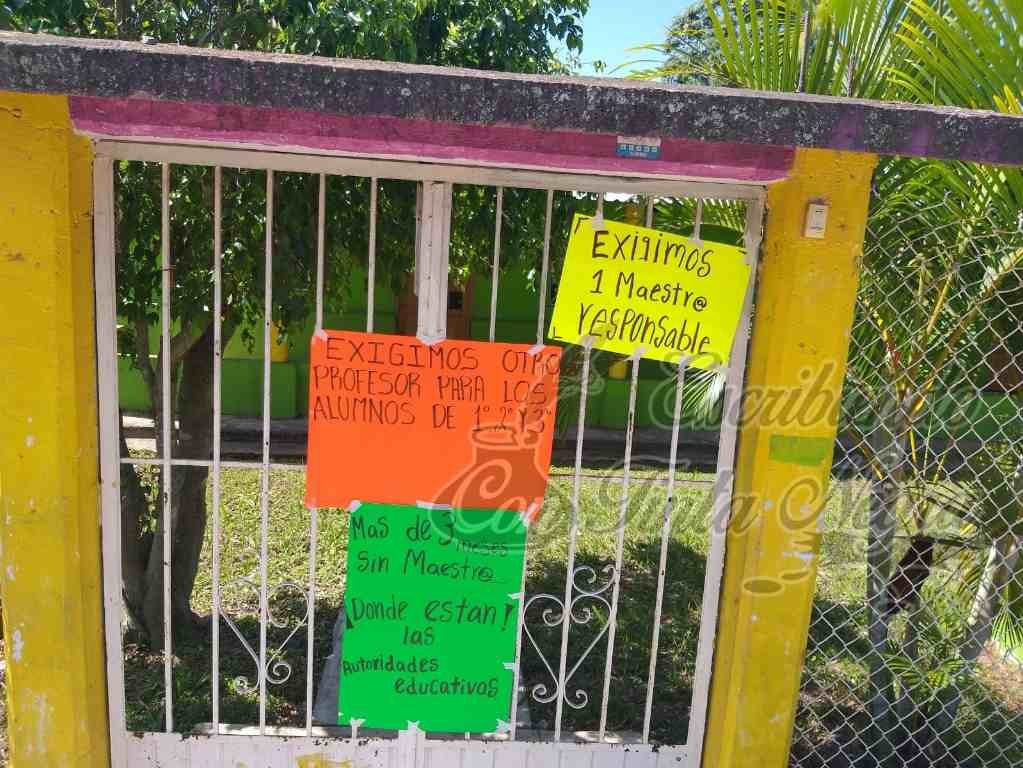 Exigimos
1 Maestr@
responsable
EXIGIMOS OTRO
PROFESOR PARA LOS
ALUMNOS DE 1°,2° Y 3°
Mas de 3 meses
Sin Maestr@
¡Donde estan!
las
Autoridades
educativos
Escribiendo
Con Tinta Negra